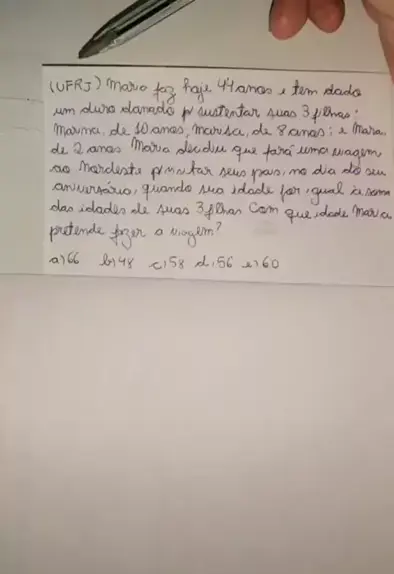 (UFRJ) Maria faz hoje 44 anos e tem dado
um duro danado p/ sustentar suas 3 filhas:
Marina, de 10 anos, Marisa, de 8 anos; e Mara,
de 2 anos Maria decidiu que fará uma viagem
ao Nordeste p/visitar seus pais, no dia do seu
aniversário, quando sua idade for igual à soma
das idades de suas 3 filhas Com que idade Maria
pretende fazer a viagem?
a) 66 b) 48 c) 58 d) 56 e) 60